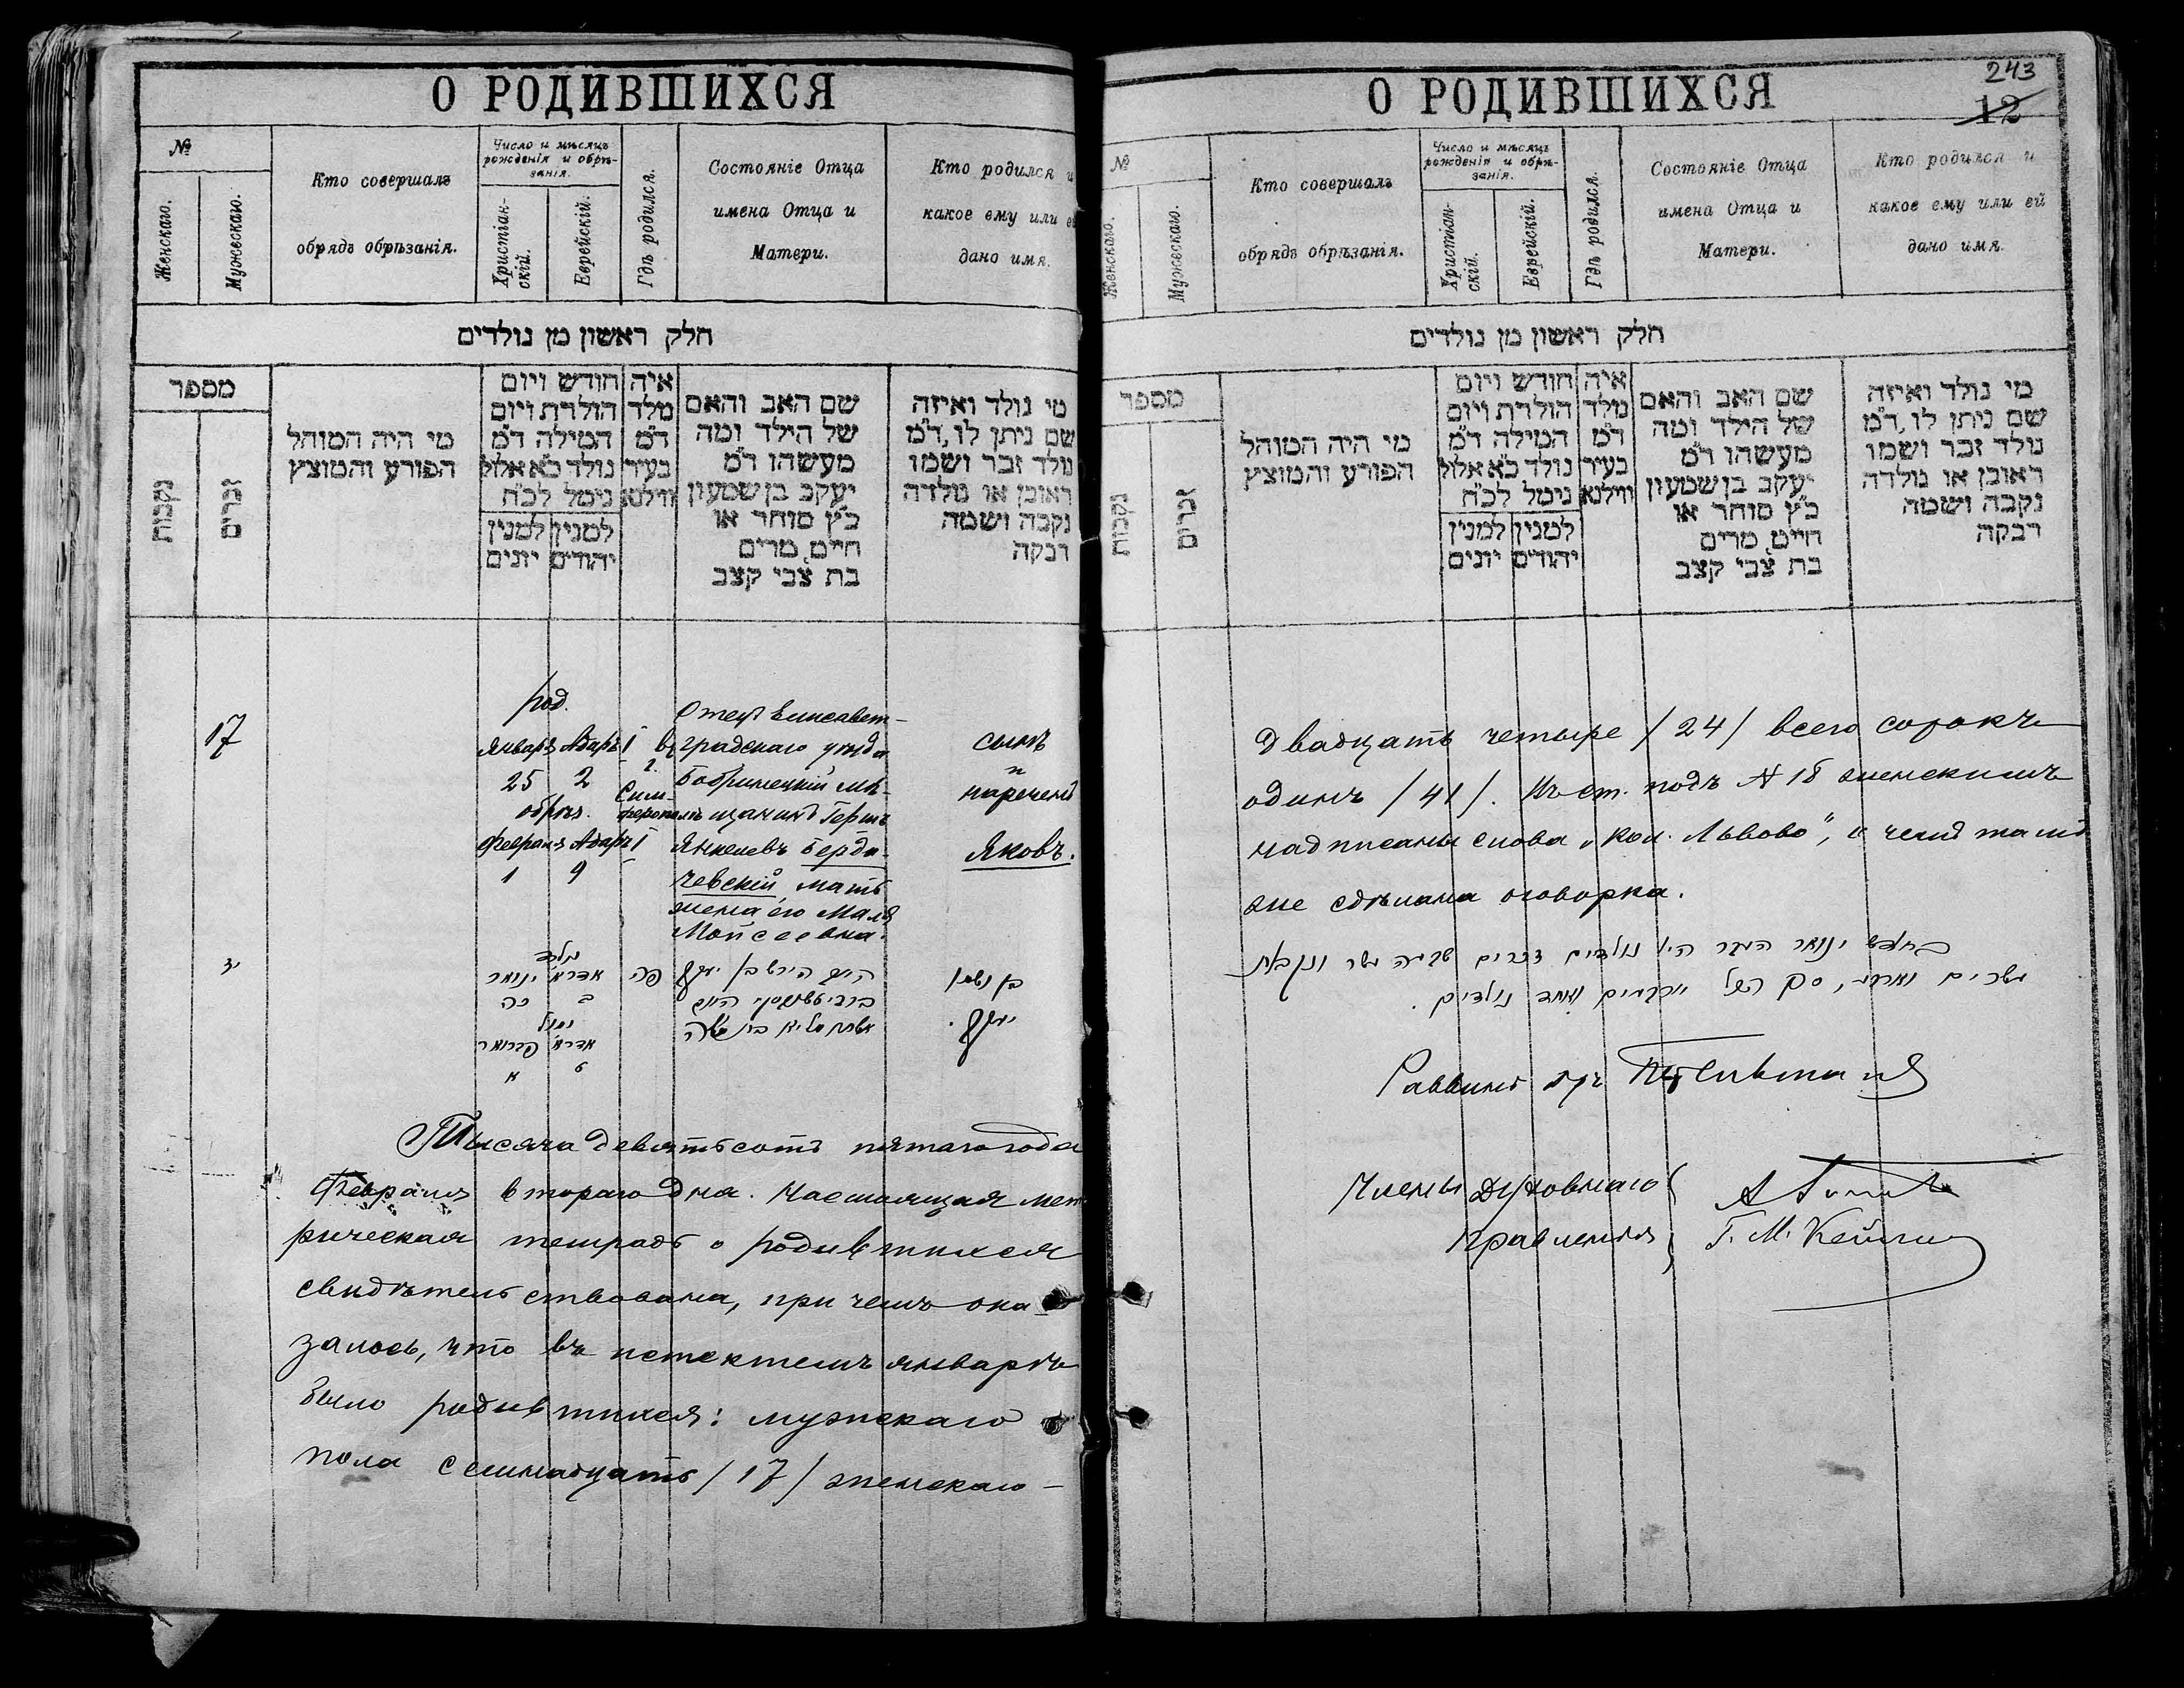 О РОДИВШИХСЯ
№
Женскаго.
Мужескаго.
Кто совершалъ
обрядъ обрѣзанія.
Число и мѣсяцъ
рожденія и обрѣ-
занія.
Христіан-
скій.
Еврейскій.
Гдѣ родился.
Состояніе Отца
имена Отца и
Матери.
Кто родился и
какое ему или ей
дано имя.
חלק ראשון מן נולדים
מספר
נקבות
זכרים
מי היה המוהל
הפורע והמוצץ
חודש ויום
הולדת ויום
המילה ד״מ
נולד כ״א אלול
נימל לכ״ח
למנין
יהודים
למנין
יונים
איה
נולד
ד״מ
בעיר
ווילנא
שם האב והאם
של הילד ומה
מעשהו ד״מ
יעקב בן שמעון
כ״ץ סוחר או
חייט, מרים
בת צבי קצב
מי נולד ואיזה
שם ניתן לו, ד״מ
נולד זכר ושמו
ראובן או נולדה
נקבה ושמה
רבקה
17
род.
Январь Адаръ I
25 2
обрѣз.
Февраль Адаръ I
1 9
въ
г.
Сим-
ферополѣ
Отецъ Елисавет-
градскаго уѣзда
Бобринецкій мѣ-
щанинъ Гершъ
Янкелевъ Берди-
чевскій, мать
жена его Маля
Мойсеевна.
сынъ
и
нареченъ
Яковъ.
יז
נולד
אדר א׳ ינואר
ב כה
נימול
אדר א׳ פברואר
ט א
פה
הירש בן יעקב
בן ושמו
יעקב.
Тысяча девятьсотъ пятаго года
Февраля втораго дня. Настоящая мет-
рическая тетрадь о родившихся
свидѣтельствована, при чемъ ока-
залось, что въ истекшемъ январѣ
было родившихся: мужскаго
пола семнадцать /17/ женскаго –
О РОДИВШИХСЯ
243
12
№
Женскаго.
Мужескаго.
Кто совершалъ
обрядъ обрѣзанія.
Число и мѣсяцъ
рожденія и обрѣ-
занія.
Христіан-
скій.
Еврейскій.
Гдѣ родился.
Состояніе Отца
имена Отца и
Матери.
Кто родился и
какое ему или ей
дано имя.
חלק ראשון מן נולדים
מספר
נקבות
זכרים
מי היה המוהל
הפורע והמוצץ
חודש ויום
הולדת ויום
המילה ד״מ
נולד כ״א אלול
נימל לכ״ח
למנין
יהודים
למנין
יונים
איה
נולד
ד״מ
בעיר
ווילנא
שם האב והאם
של הילד ומה
מעשהו ד״מ
יעקב בן שמעון
כ״ץ סוחר או
חייט, מרים
בת צבי קצב
מי נולד ואיזה
שם ניתן לו, ד״מ
נולד זכר ושמו
ראובן או נולדה
נקבה ושמה
רבקה
двадцать четыре /24/ всего сорокъ
одинъ /41/. Въ ст. подъ № 18 женскимъ
надписаны слова „кол. Львово", о чемъ та
же сдѣлана оговорка.
בחודש ינואר העבר היו נולדים זכרים שבעה עשר ונקבות
עשרים וארבע, סך הכל ארבעים ואחד נולדים.
Раввинъ
Члены Духовнаго
Правленія
Г. М.